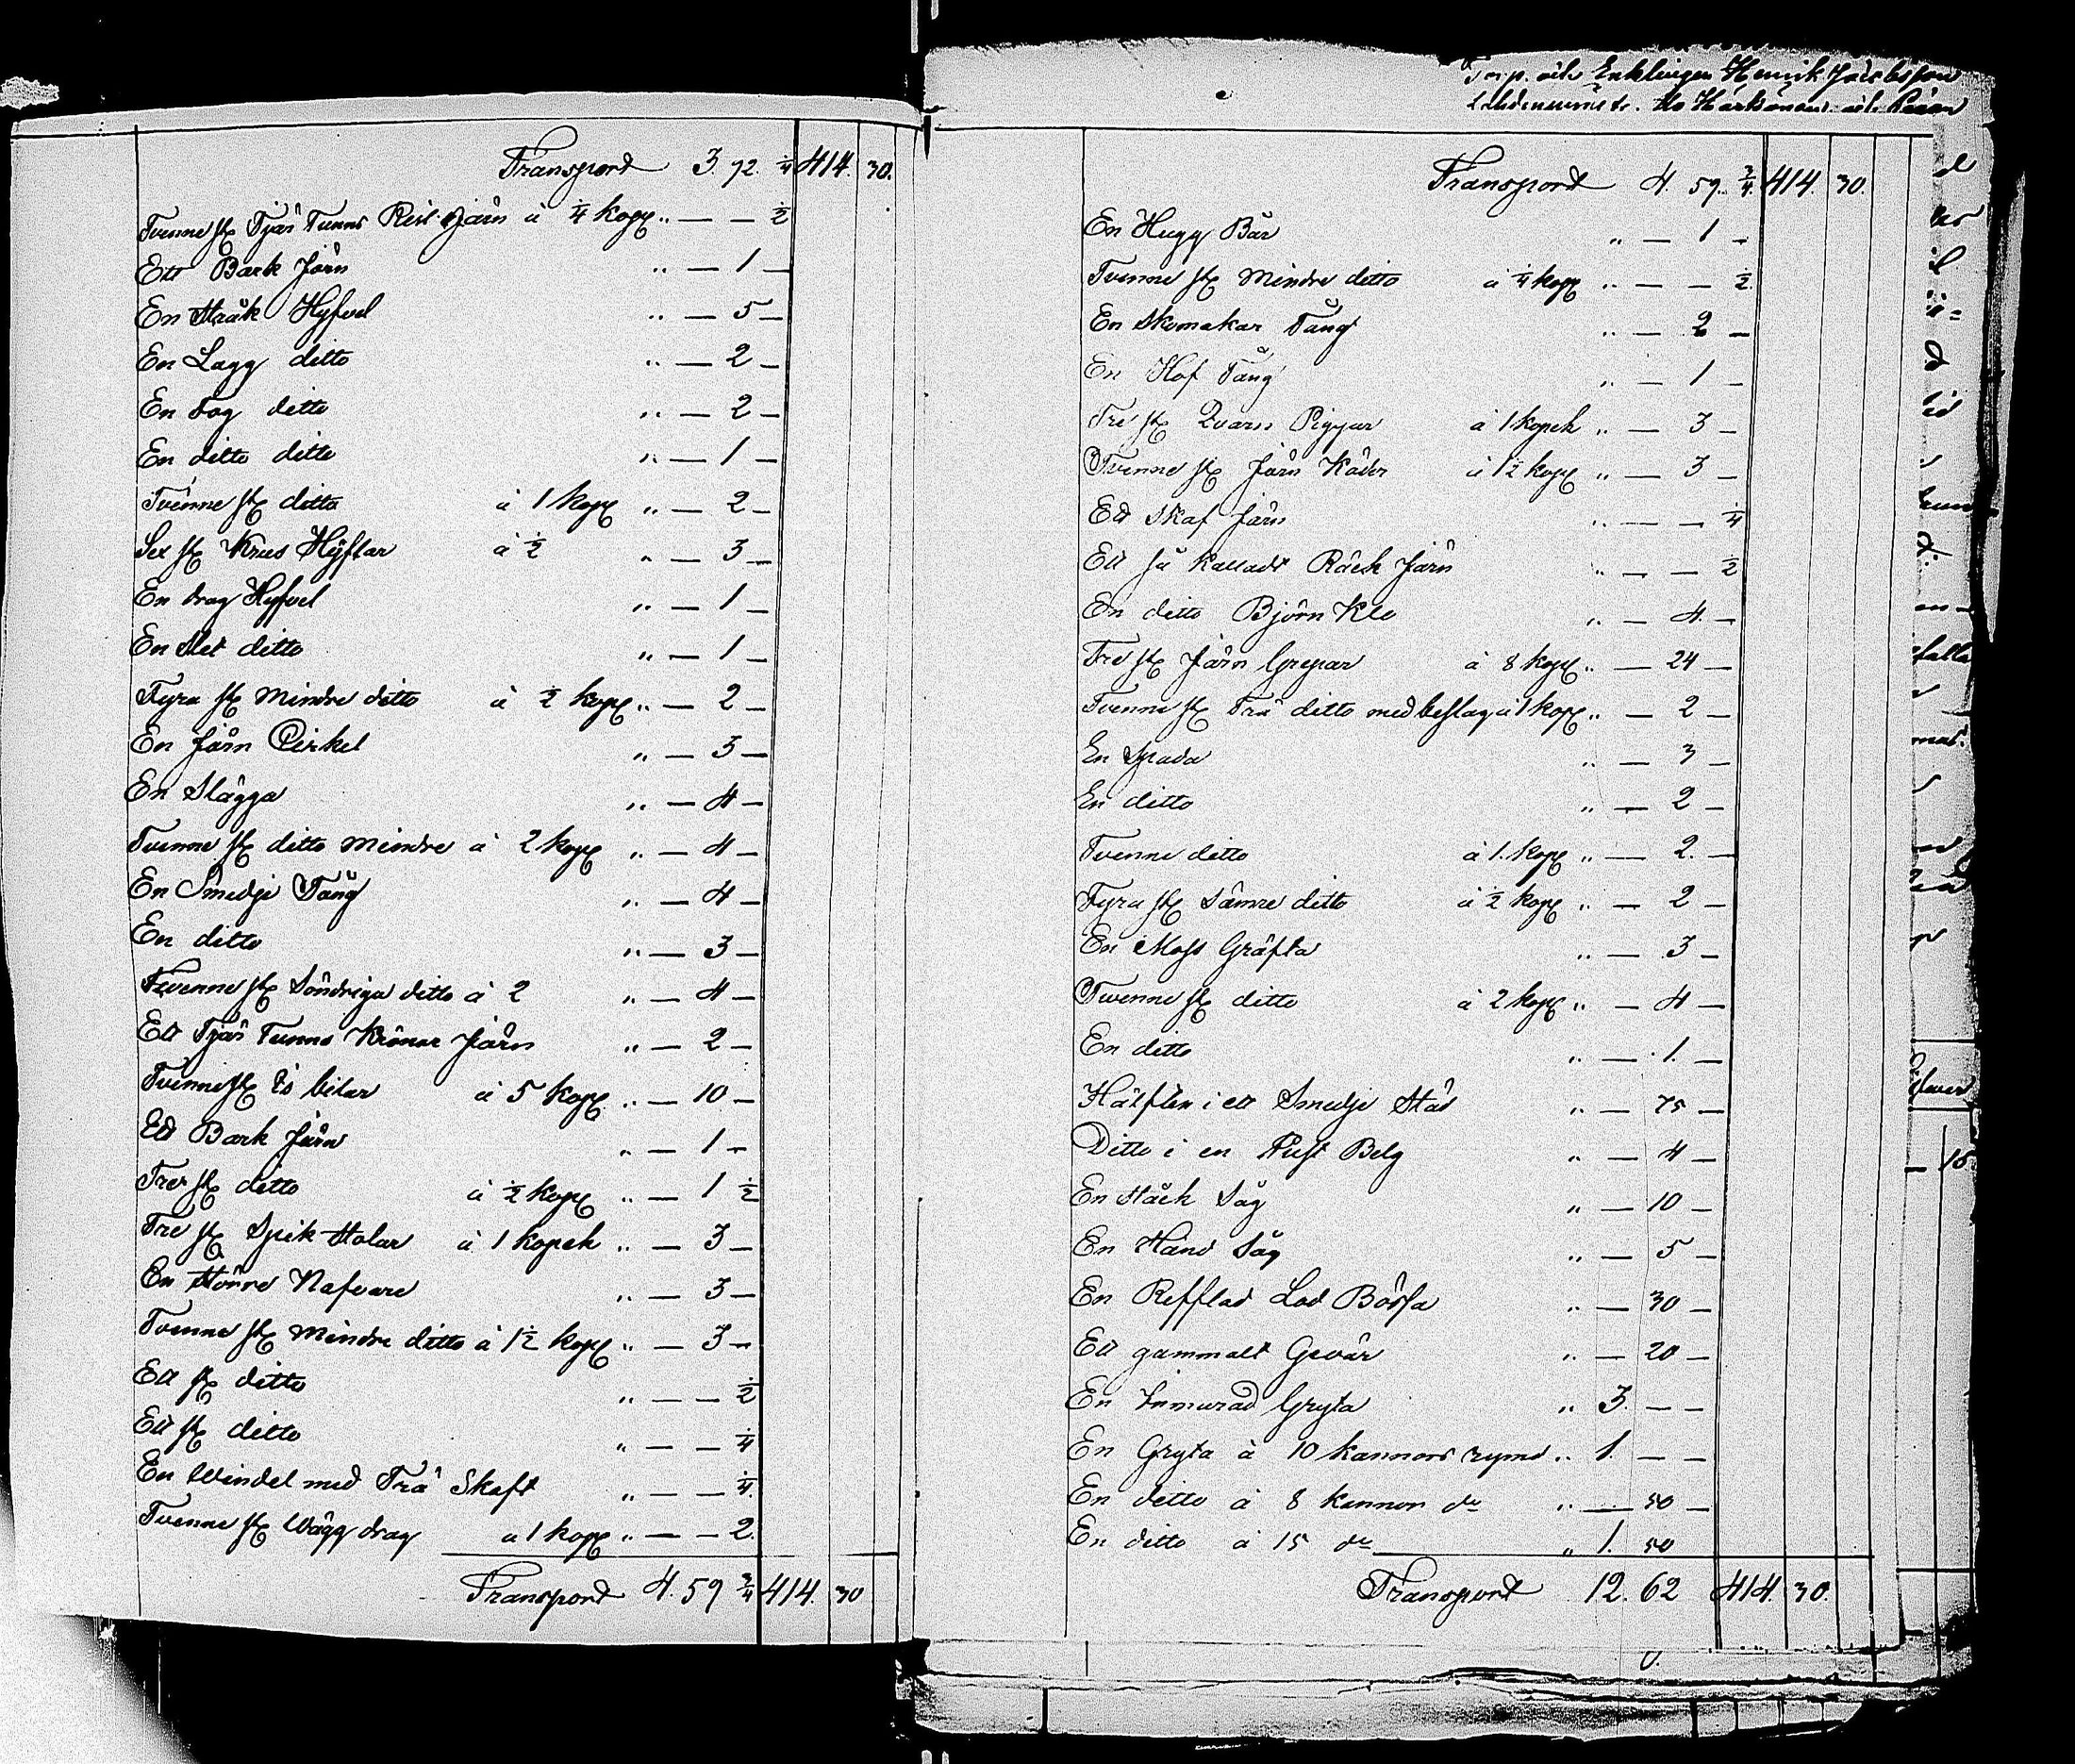 Transport 3. 92. ¼ 414. 30.
Tvenne st Tjär Tunns Reil Järn á ¼ kop „ — — ½
Ett Bark Järn „ — 1 —
En Stråk Hyfvel „ — 5 —
En Lagg ditto „ — 2 —
En Fog ditto „ — 2 —
En ditto ditto „ — 1 —
Tvenne st ditto á 1 kop „ — 2 —
Sex st Krus Hyflar á ½ „ — 3 —
En drag Hyfvel „ — 1 —
En Slet ditto „ — 1 —
Fyra st Mindre ditto á ½ kop „ — 2 —
En Järn Cirkel „ — 3 —
En Slägga „ — 4 —
Tvenne st ditto mindre á 2 kop „ — 4 —
En Smedje Tång „ — 4 —
En ditto „ — 3 —
Tvenne st Söndriga ditto á 2 „ — 4 —
Ett Tjär Tunns Krönar Järn „ — 2 —
Tvenne st Is bilar á 5 kop „ — 10 —
Ett Bark Järn „ — 1 —
Tre st ditto á ½ kop „ — 1 ½
Tre st Spik Stolar á 1 kopek „ — 3 —
En Större Nafvare „ — 3 —
Tvenne st mindre ditto á 1½ kop „ — 3 —
Ett st ditto „ — — ½
Ett st ditto „ — — ¼
En Windel med Trä Skaft „ — — ¼.
Tvenne st Wägg drag á 1 kop „ — — 2.
Transport 4. 59 ¾ 414. 30
Enklingen Henrik Jacobsson
Transport 4. 59. ¾ 414. 30.
En Hugg Bår „ — 1 —
Tvenne st Mindre ditto á ¼ kop „ — — ½.
En Skomakar Tång „ — 2 —
En Hof Tång „ — 1 —
Tre st Qvarn Piggar á 1 kopek „ — 3 —
Tvenne st Järn Käder á 1½ kop „ — 3 —
Ett Skaf Järn „ — — ¼
Ett så kalladt Räck Järn „ — — ½
En ditto Björn Klo „ — 4. —
Tre st Järn Grepar á 8 kop „ — 24 —
Tvenne st Trä ditto med beslag á 1 kop „ — 2 —
En Spada „ — 3 —
En ditto „ — 2 —
Tvenne ditto á 1. kop „ — 2. —
Fyra st Sämre ditto á ½ kop „ — 2 —
En Moss Gräfta „ — 3 —
Tvenne st ditto á 2 kop „ — 4 —
En ditto „ — 1. —
Hälften i ett Smedje Städ „ — 75 —
Ditto i en Pust Belg „ — 4 —
En Stäck Såg „ — 10 —
En Hand Såg „ — 5 —
En Refflad Lod Bössa „ — 30 —
Ett gammalt Gevär „ — 20 —
En Inmurad Gryta „ 3. — —
En Gryta á 10 kannors rymd „ 1. — —
En ditto á 8 kannor do „ — 50 —
En ditto á 15 do „ 1. 50
Transport 12. 62 414. 30.